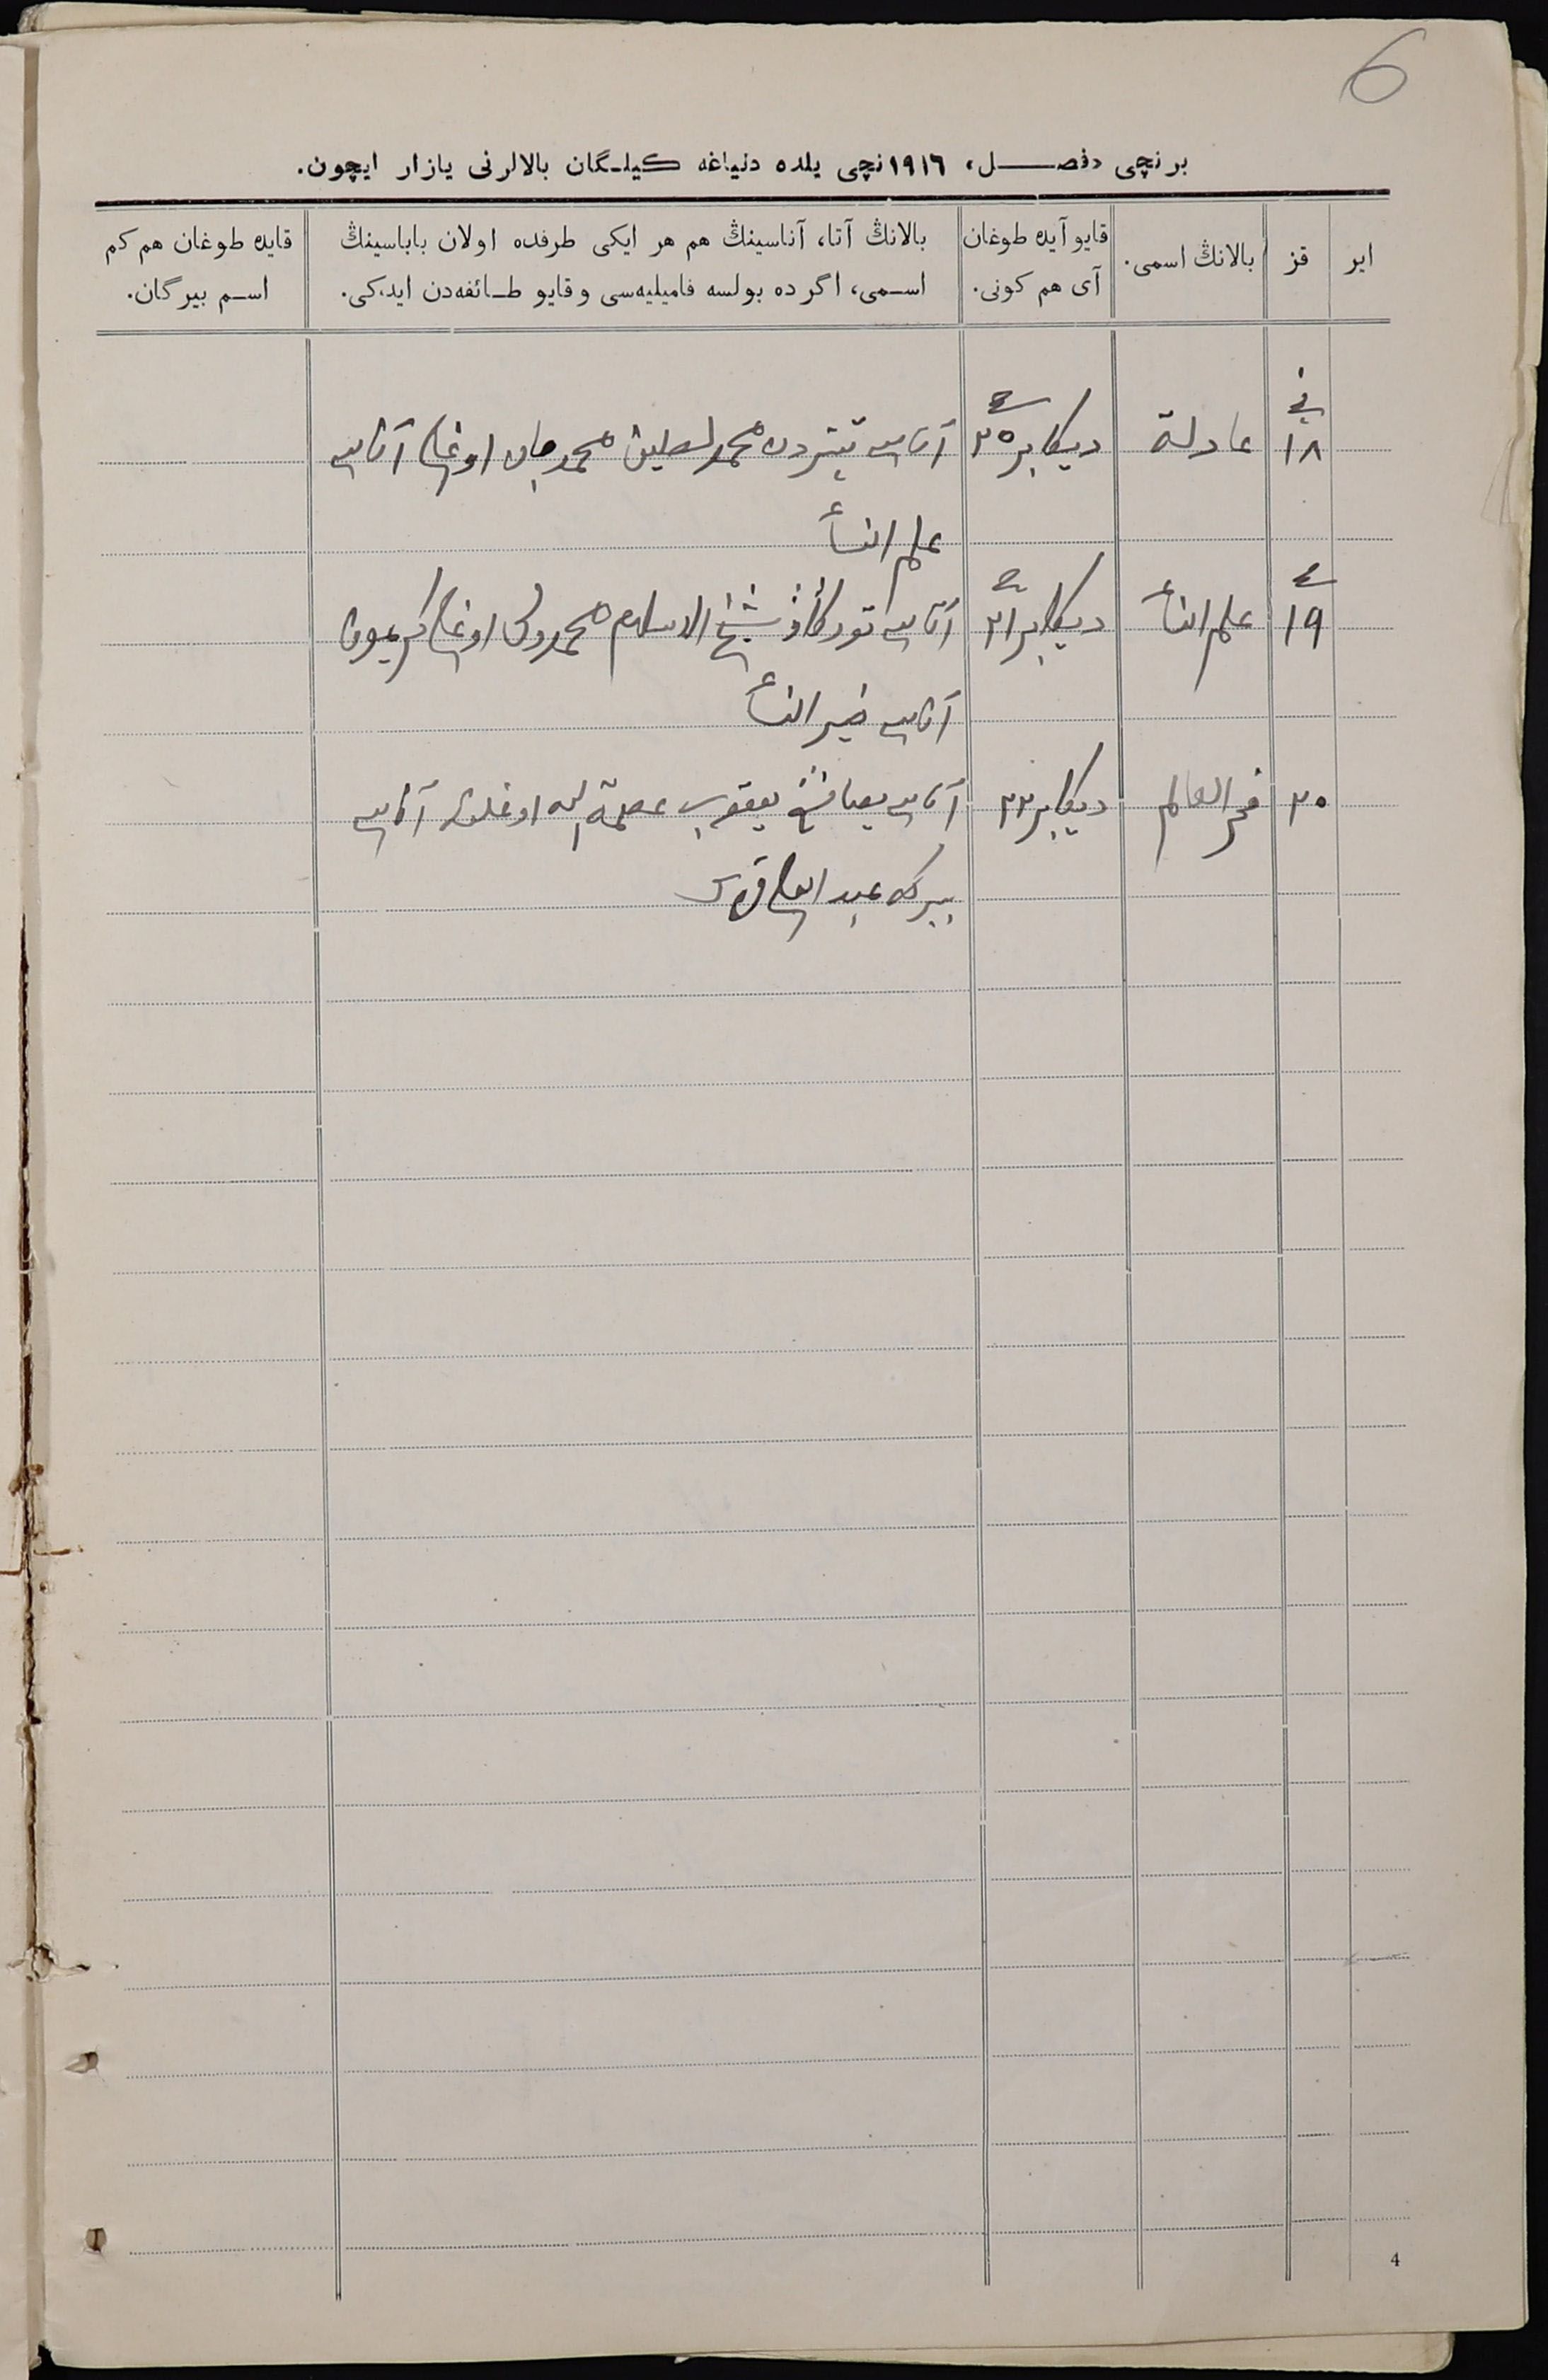 6
برنچی «فصل» ١٩١٦نچی یلده دنیاغه کیلگان بالالرنی یازار ایچون.
ایر
قز
بالانڭ اسمی.
قایو آیده طوغان
آی هم کونی.
بالانڭ آتا، آناسینڭ هم هر ایکی طرفده اولان باباسینڭ
اسمی، اگر ده بولسه فامیلیه‌سی و قایو طائفه‌دن ایدکی.
قایده طوغان هم کم
اسم بیرگان.
١٨ عادلة دیکابر ٢٥ آتاسی محمد محمدجان اوغلی آناسی
علم النسأ
١٩ علم النسأ دیکابر ٢١ آتاسی شیخ الاسلام محمدولی اوغلی کریموف
آناسی خیر النسأ
٢٠ فخر العالم دیکابر ٢٢ آتاسی یعقوب عصمة الله آناسی
عبد
4